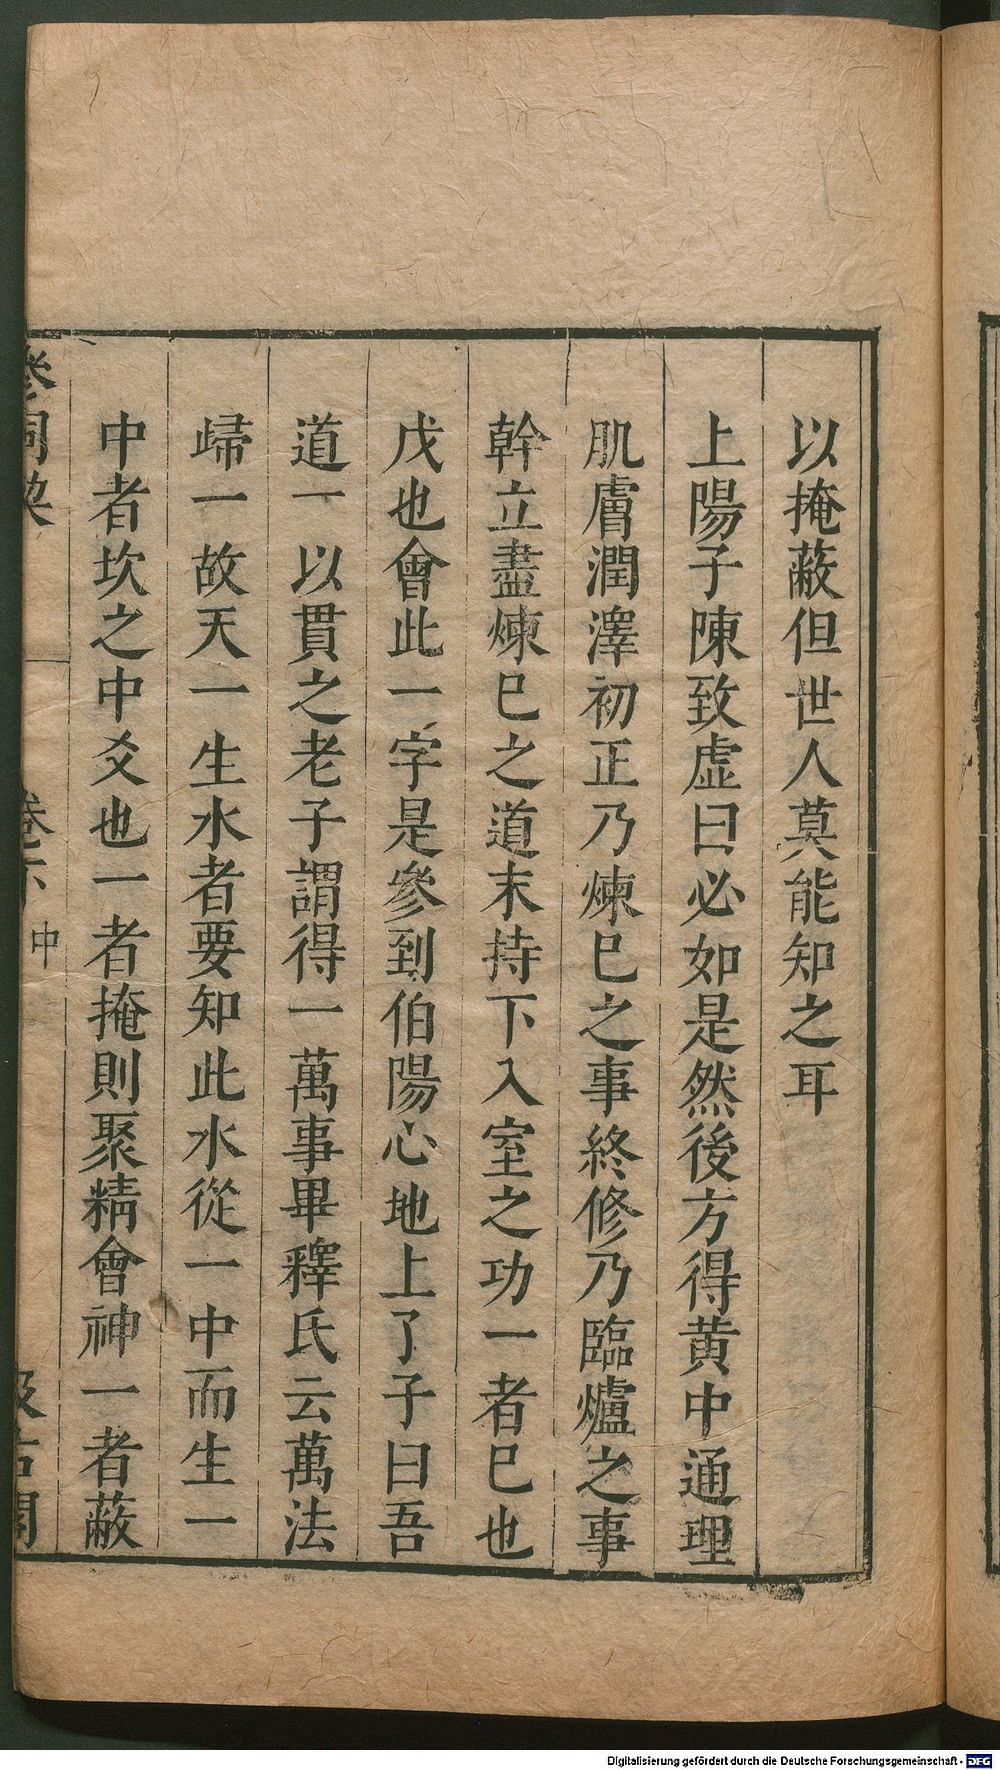 以掩蔽但世人莫能知之耳
上陽子陳致虛曰必如是然後方得黄中通理
肌膚潤澤初正乃煉巳之事終修乃臨爐之事
幹立盡煉巳之道末持下入室之功一者巳也
戊也會此一字是參到伯陽心地上了子曰吾
道一以貫之老子謂得一萬事畢釋氏云萬法
歸一故天一生水者要知此水從一中而生一
中者坎之中爻也一者掩則聚精會神一者蔽
參同
中
汲古閣
Digitalisierung gefördert durch die Deutsche Forschungsgemeinschaft - DFG